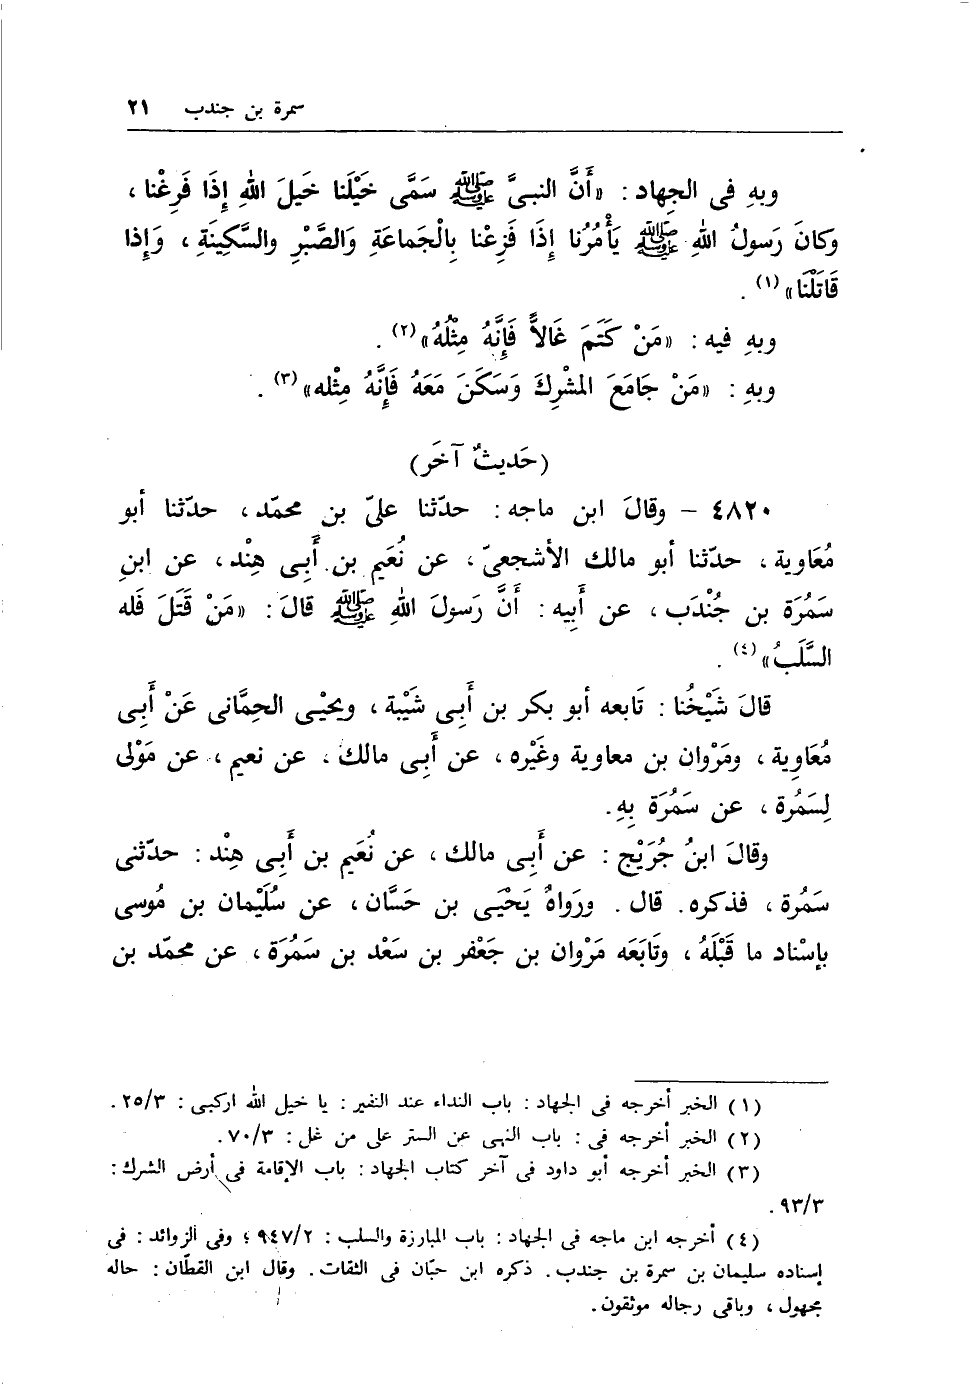 سمرة بن جندب ٢١
وبهِ فى الجهاد : «أَنَّ النبىَّ ﷺ سَمَّى خَيْلَنا خَيلَ اللهِ إِذَا فَزِعْنا ،
وكانَ رَسولُ اللهِ ﷺ يَأْمُرُنا إِذَا فَزِعْنا بِالْجَماعَةِ وَالصَّبْرِ والسَّكِينَةِ ، وَإِذا
قَاتَلْنَا»(١) .
وبهِ فيه : «مَنْ كَتَمَ غَالاًّ فَإِنَّهُ مِثْلُهُ»(٢) .
وبهِ : «مَنْ جَامَعَ المشْرِكَ وَسَكَنَ مَعَهُ فَإِنَّهُ مِثْله»(٣) .
(حَديثٌ آخَر)
٤٨٢٠ – وقالَ ابن ماجه : حدّثنا علىّ بن محمّد ، حدّثنا أبو
مُعَاوية ، حدّثنا أبو مالك الأشجعىّ ، عن نُعَيم بن أَبِى هِنْد ، عن ابنِ
سَمُرَة بن جُنْدَب ، عن أَبيه : أَنَّ رَسولَ اللهِ ﷺ قالَ : «مَنْ قَتَلَ فَله
السَّلَبُ»(٤) .
قالَ شَيْخُنا : تَابعه أبو بكر بن أَبِى شَيْبَة ، ويحْيْى الحِمَّانى عَنْ أَبِى
مُعَاوِية ، ومَرْوان بن معاوية وغَيْره ، عن أَبِى مالك ، عن نعيم ، عن مَوْلى
لِسَمُرة ، عن سَمُرَة بِهِ.
وقالَ ابنُ جُرَيْج : عن أَبِى مالك ، عن نُعَيم بن أَبِى هِنْد : حدّثنى
سَمُرة ، فذكره . قال . ورَواهُ يَحْيَى بن حَسَّان ، عن سُلَيْمان بن مُوسى
بإسْناد ما قَبْلَهُ ، وتَابَعَه مَرْوان بن جَعْفر بن سَعْد بن سَمُرَة ، عن محمّد بن
(١) الخبر أخرجه فى الجهاد : باب النداء عند النفير : يا خيل الله اركبى : ٢٥/٣ .
(٢) الخبر أخرجه فى : باب النهى عن الستر على من غل : ٧٠/٣ .
(٣) الخبر أخرجه أبو داود فى آخر كتاب الجهاد : باب الإقامة فى أرض الشرك :
٩٣/٣ .
(٤) أخرجه ابن ماجه فى الجهاد : باب المبارزة والسلب : ٩٤٧/٢ ؛ وفى الزوائد : فى
إسناده سليمان بن سمرة بن جندب . ذكره ابن حبّان فى الثقات . وقال ابن القطّان : حاله
مجهول ، وباقى رجاله موثقون .